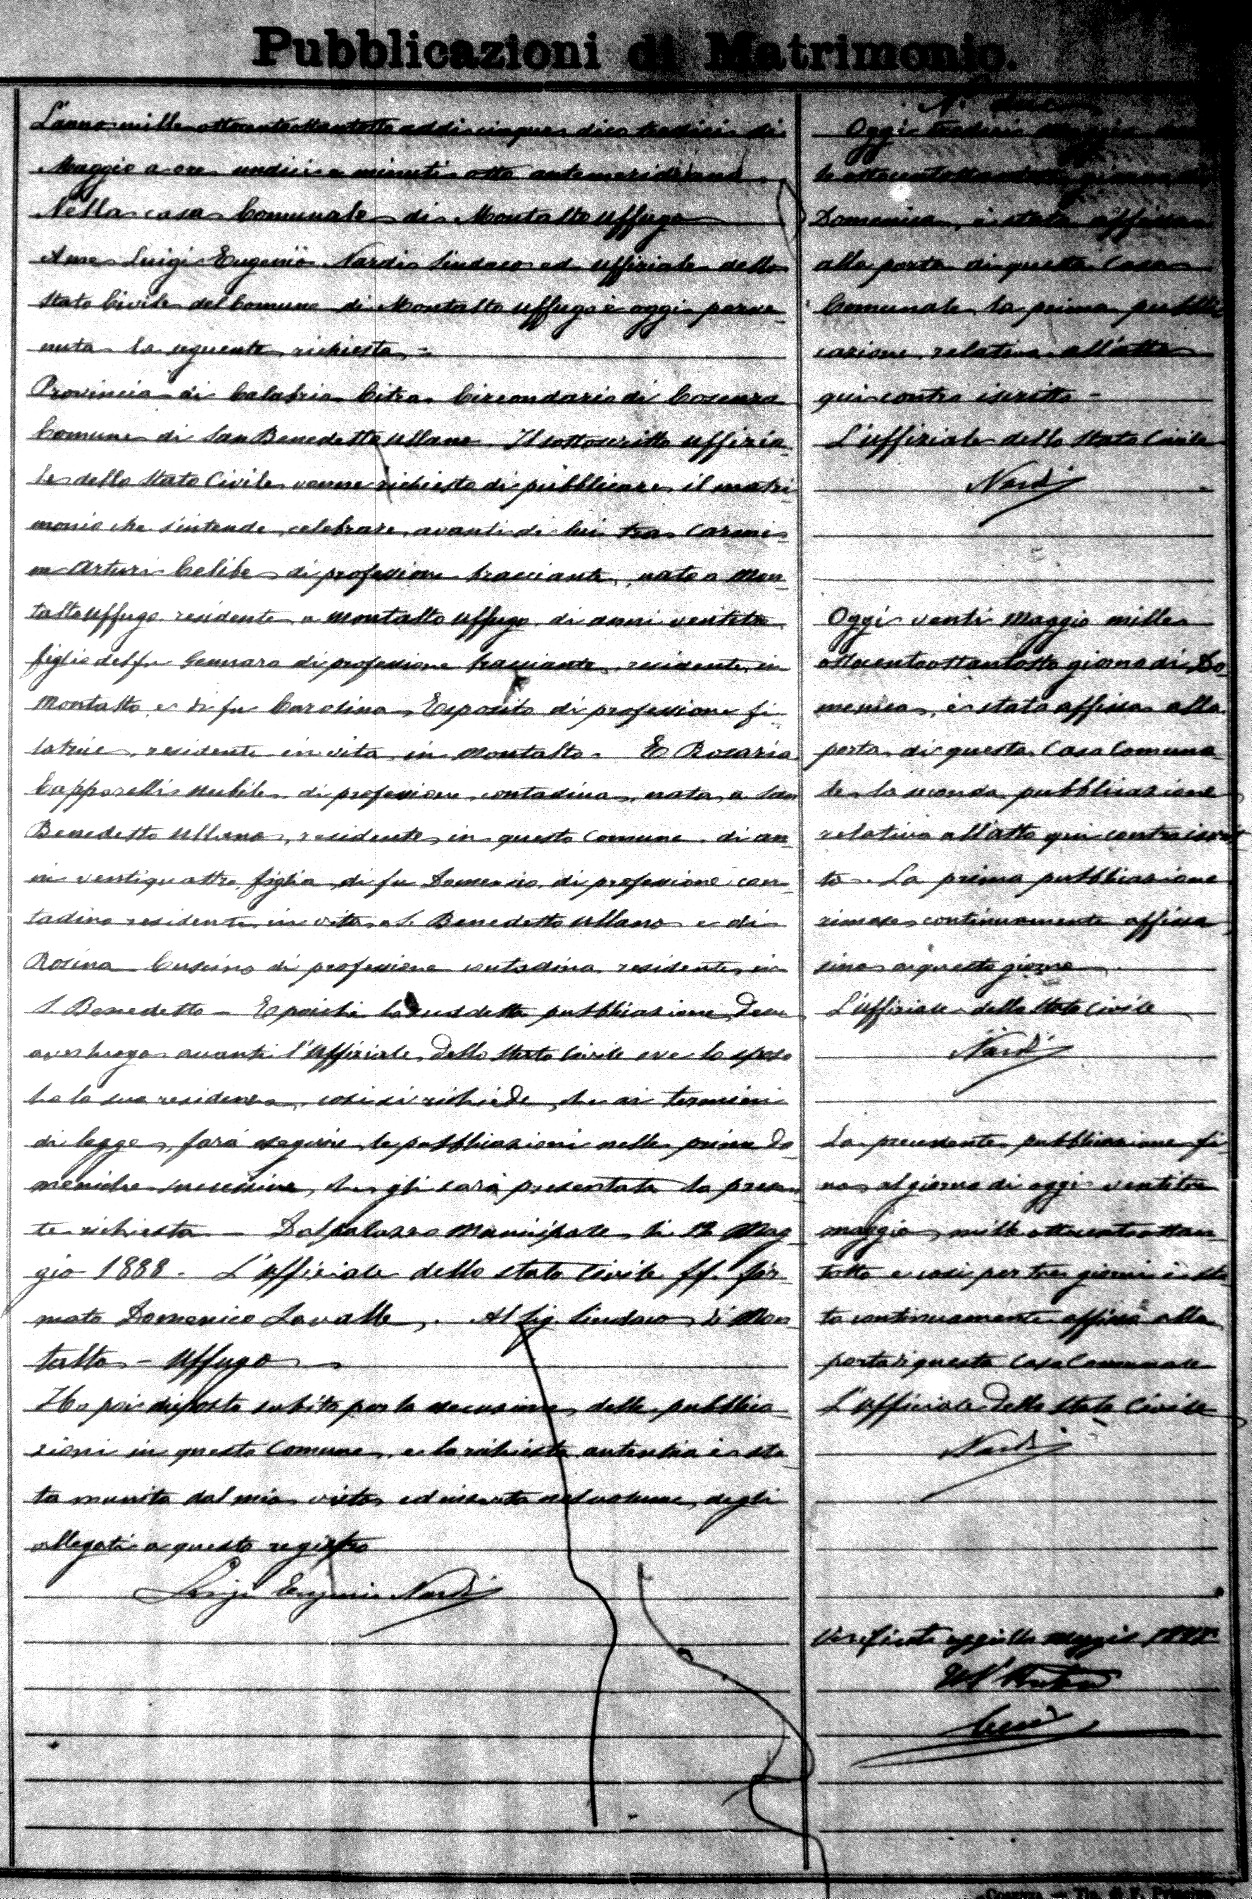 Pubblicazioni di Matrimonio.
L'anno mille ottocentottantotto addi cinque dico tredici di
Maggio a ore undici e minuti otto antemeridiane
Nella casa Comunale di Montalto Uffugo
A me Luigi Eugenio Nardi Sindaco ed Uffiziale dello
Stato Civile del Comune di Montalto Uffugo è oggi perve-
nuta la seguente richiesta =
Provincia di Calabria Citra. Circondario di Cosenza
Comune di San Benedetto Ullano. Il sottoscritto uffizia-
le dello Stato Civile, venne richiesto di pubblicare il matri
monio che s'intende celebrare avanti di lui tra
Arturi Celibe di professione bracciante, nato a Mon-
talto Uffugo residente a Montalto Uffugo di anni ventitre
figlio del fu Gennaro di professione bracciante, residente in
Montalto e di fu Carolina Esposito di professione fi-
latrice, residente in vita in Montalto. E Rosaria
Capparelli nubile, di professione contadina, nata a San
Benedetto Ullano, residente in questo Comune di an-
ni ventiquattro figlia di fu Domenico di professione con-
tadino residente in vita a S. Benedetto Ullano e di
Rosina di professione contadina residente in
S. Benedetto - E poichè la suddetta pubblicazione deve
aver luogo avanti l'Uffiziale dello Stato Civile ove lo sposo
ha la sua residenza, così si richiede che ai termini
di legge, farà eseguire le pubblicazioni nelle prime do-
meniche successive, che gli sarà presentata la presen-
te richiesta - Dal palazzo Municipale li 12 Mag-
gio 1888. L'Uffiziale dello Stato Civile ff. fir-
mato Domenico Lavalle. Al Sig. Sindaco di Mon-
talto - Uffugo
Ho poi disposto subito per la esecuzione delle pubblica-
zioni in questo Comune, e la richiesta autentica è sta-
ta munita dal mio visto, ed inserita nel volume degli
allegati a questo registro
Luigi Eugenio Nardi
Oggi tredici Maggio
Domenica, è stata affissa
alla porta di questa Casa
Comunale la prima pubbli
cazione relativa all'atto
qui contro iscritto -
L'uffiziale dello Stato Civile
Nardi
Oggi venti Maggio mille
ottocentottantotto giorno di Do-
menica, è stata affissa alla
porta di questa Casa Comuna-
le la seconda pubblicazione
relativa all'atto qui contro iscrit
to. La prima pubblicazione
rimase continuamente affissa
sino a questo giorno
L'Uffiziale dello Stato Civile
Nardi
La precedente pubblicazione fi-
no al giorno di oggi ventitre
maggio mille ottocentottan-
totto e così per tre giorni è sta
ta continuamente affissa alla
porta di questa Casa Comunale
L'Uffiziale dello Stato Civile
Nardi